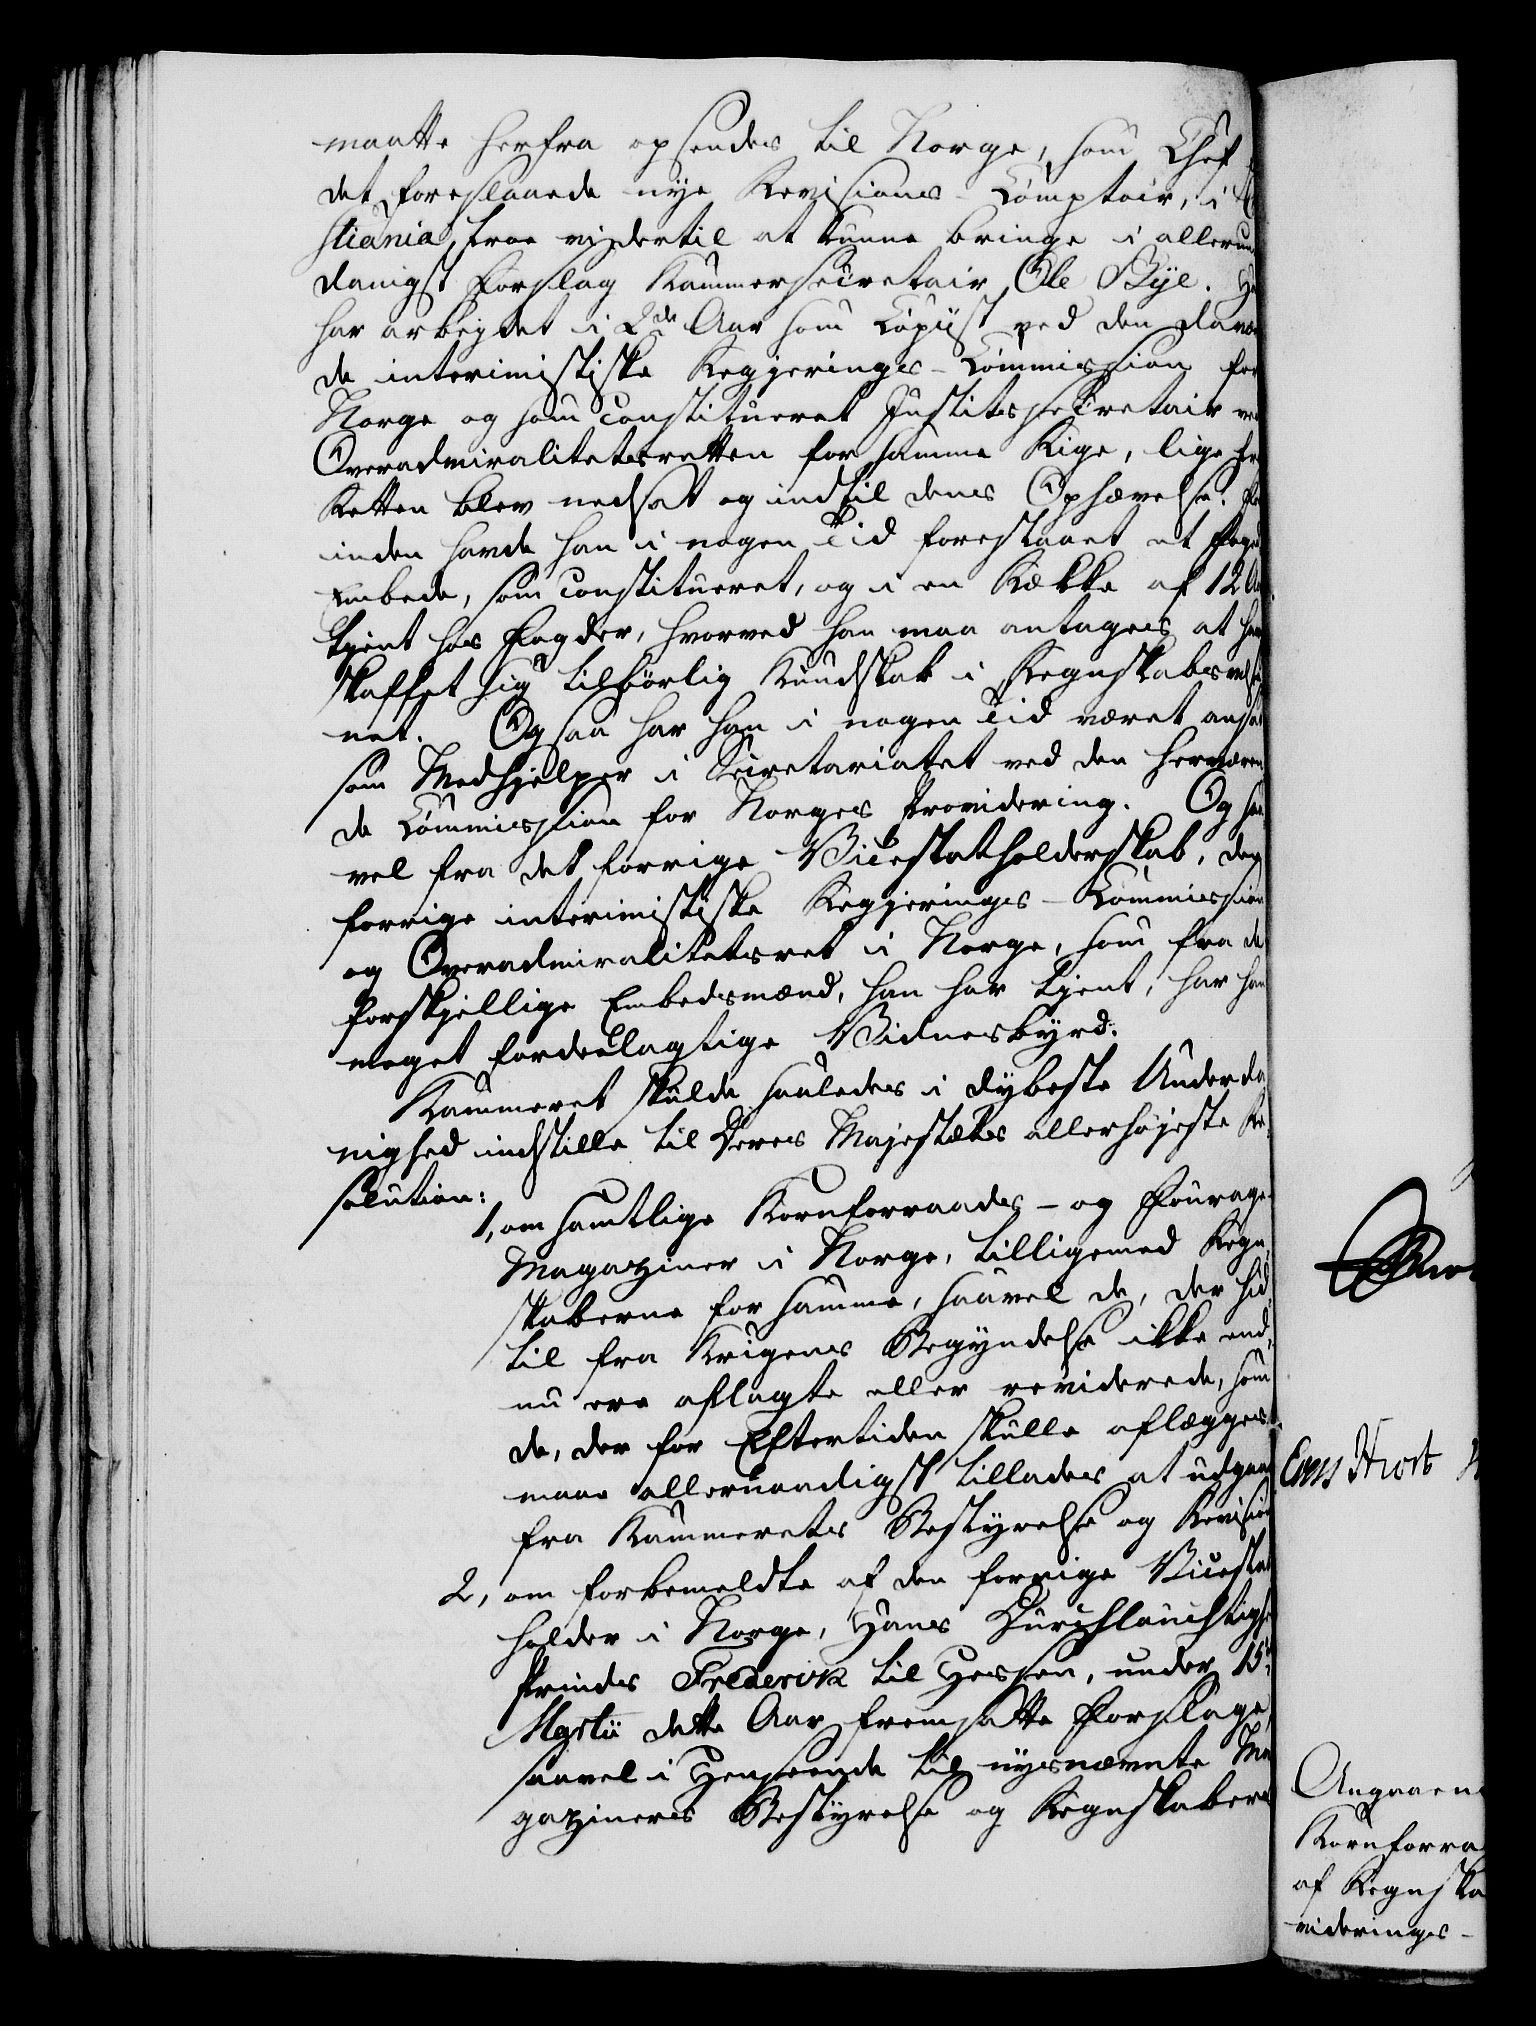 maatte herfra opsendes til Norge, som Chef
det foreslaaede nye Revisions-Comptoir, i
stiania, troe vi dertil at kunne bringe i allerun
danigst Forslag Kammersecretair Ole Bye.
har arbeydet i 2de Aar som Copiist ved den davær
de interimistiske Regjerings-Commission for
Norge og som constitueret Justitssecretair ved
Overadmiralitetsretten for samme Rige, lige fra
Retten blev nedsat og indtil dens Ophævelse.
inden havde han i nogen Tid forestaaet et Foged
Embede, som constitueret, og i en Række af 12 Aa
tjent hos Fogder, hvorved han maa antages at have
skaffet sig tilbörlig Kundskab i Regnskabsvæse
net. Ogsaa har han i nogen Tid været ansat
som Medhjelper i Secretariatet ved den herværen
de Commission for Norges Providering. Og saa
vel fra det forrige Vicestatholderskab, den
forrige interimistiske Regjerings-Commission
og Overadmiralitetsret i Norge, som fra de
forskjellige Embedsmænd, han har tjent, har han
meget fordeelagtige Vidnesbyrd.
Kammeret skulde saaledes i dybeste Underda
nighed indstille til Deres Majestæts allerhøjeste Re-
solution:
1, om samtlige Kornforraads- og Fourage-
Magaziner i Norge, tilligemed Regn-
skaberne for samme, saavel de, der hid-
til fra Krigens Begyndelse ikke end-
nu ere aflagte eller reviderede, som
de, der for Eftertiden skulle aflægges
maae allernaadigst tillades at udgaae
fra Kammerets Bestyrelse og Revision
2, om forbemeldte af den forrige Vicestat
holder i Norge, Hans Durchlauchtighe
Prinds Frederik til Hessen, under 15de
Martii dette Aar fremsatte Forslage,
saavel i Henseende til nysnævnte Ma
gaziners Bestyrelse og Regnskabers
Angaaend
Kornforra
af Regnska
viderings-